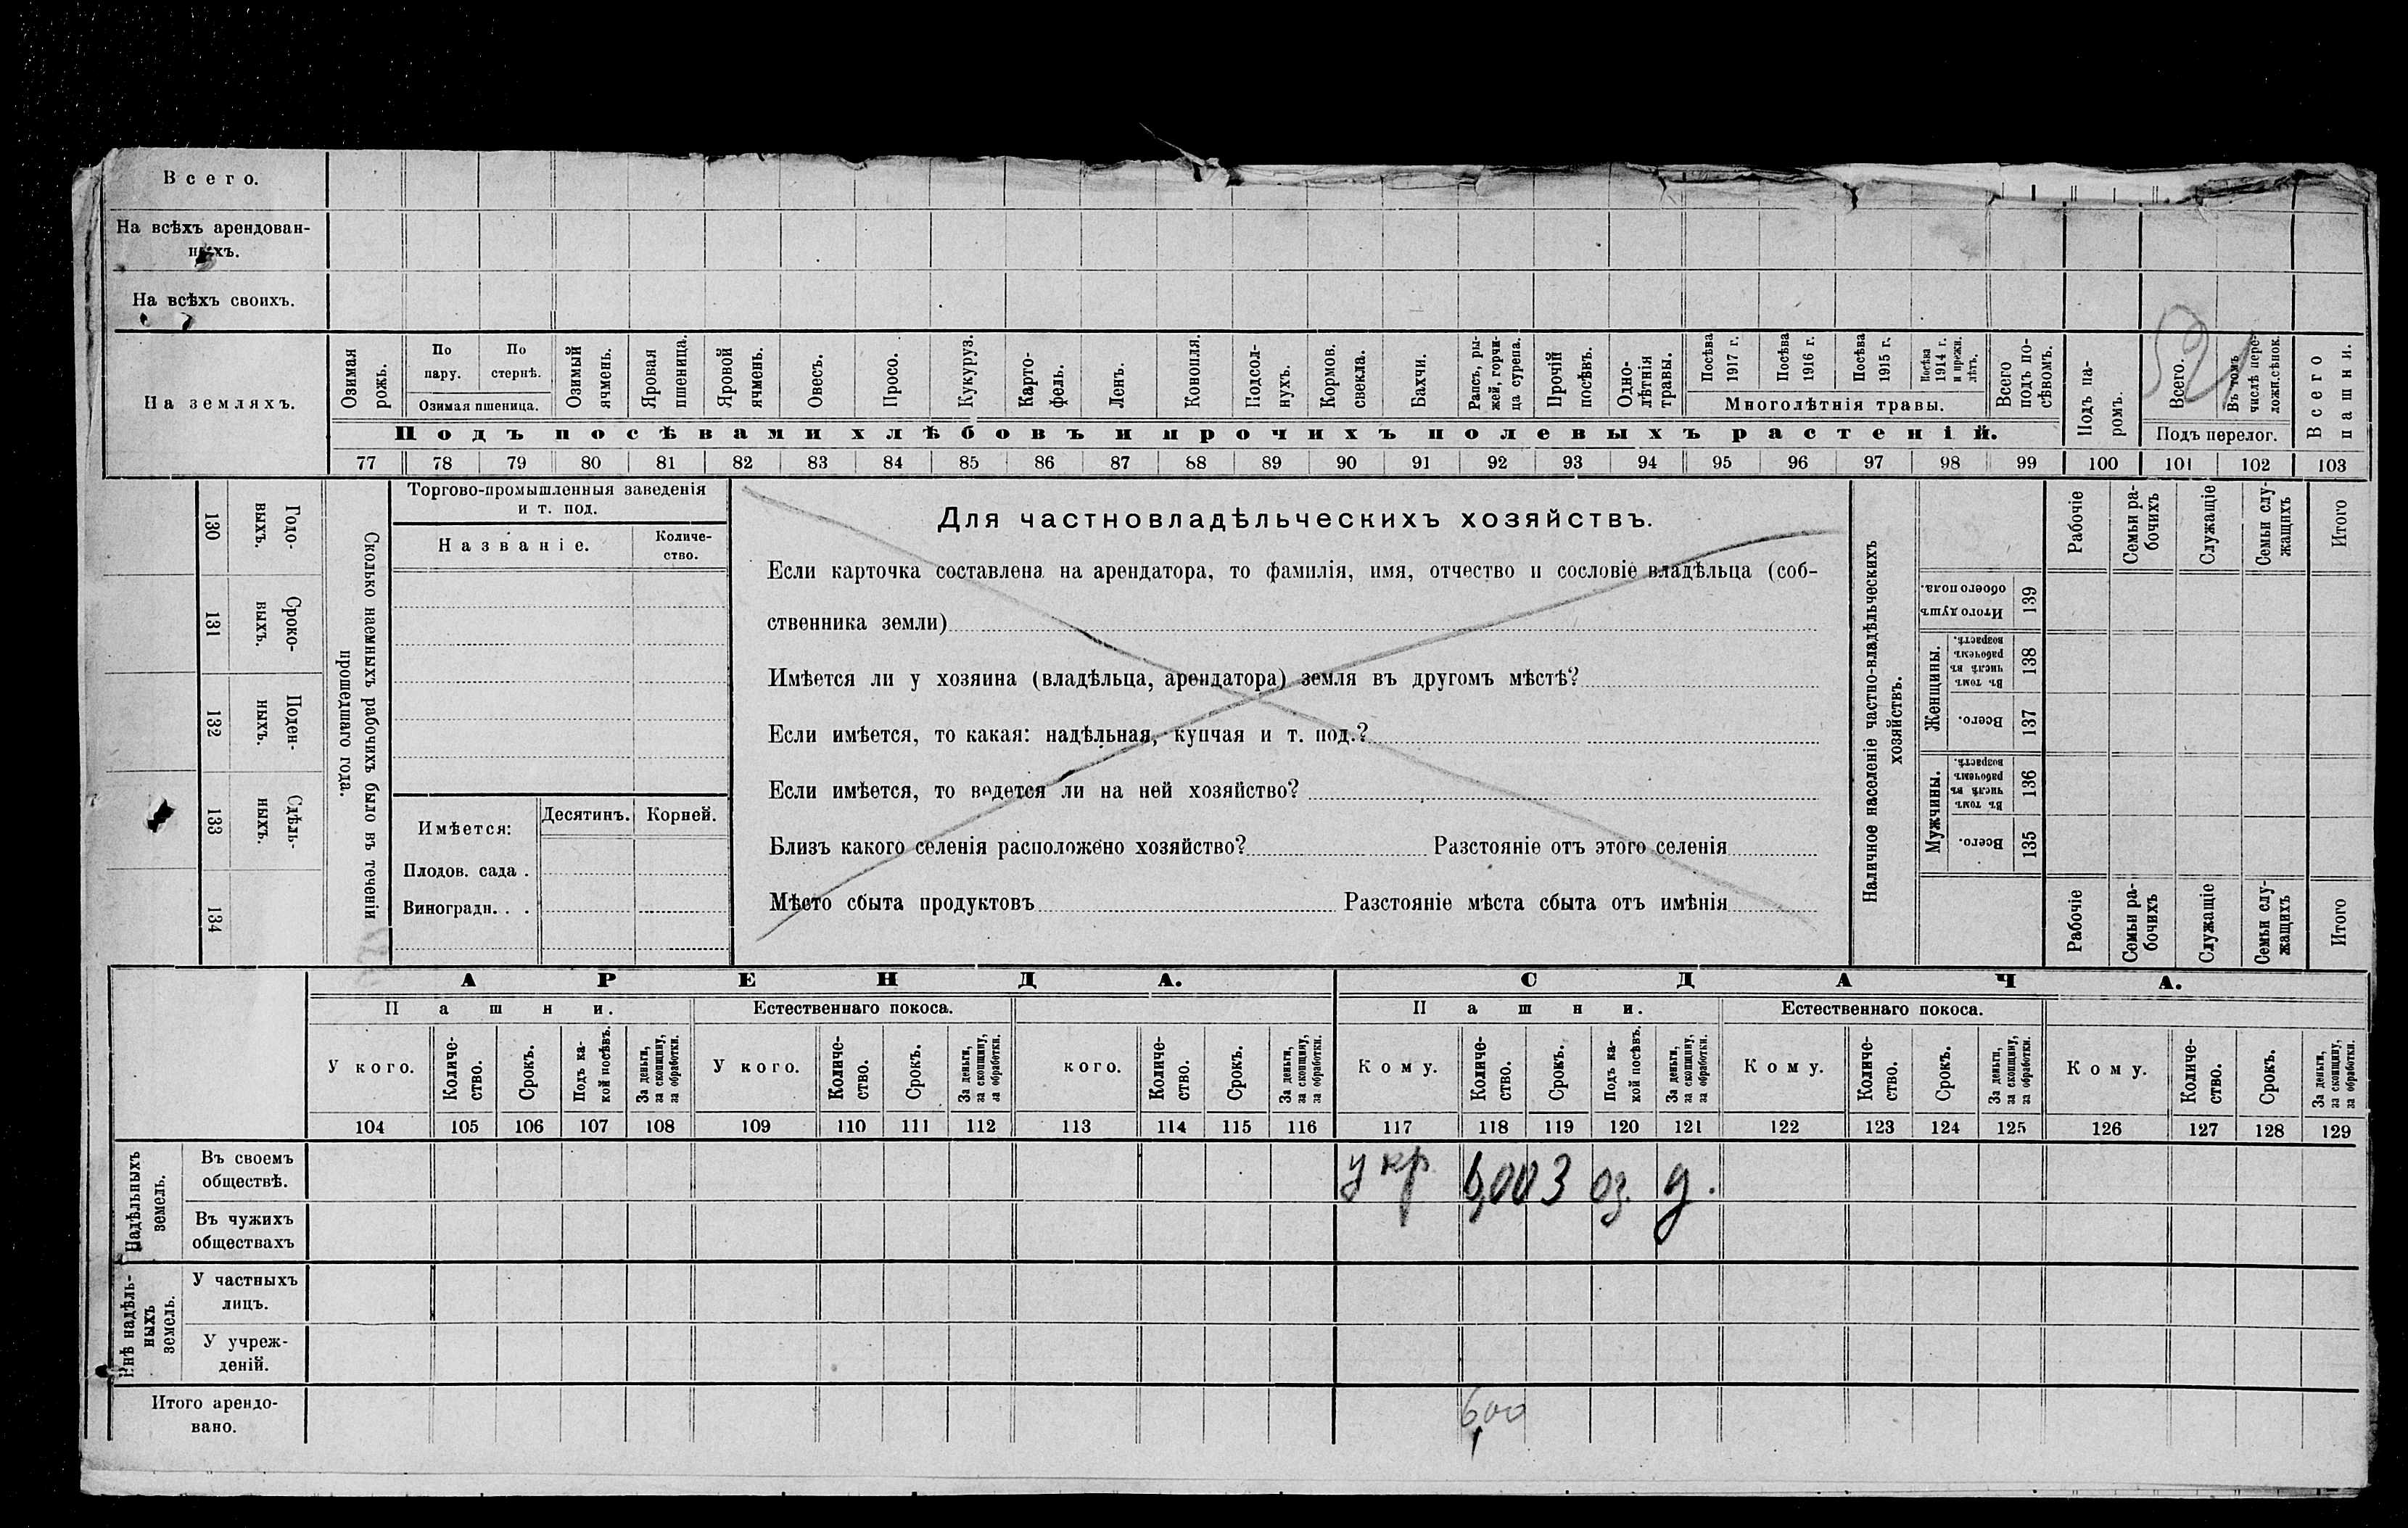 Всего.
На всѣхъ арендован-
ныхъ.
На всѣхъ своихъ.
На земляхъ.
Озимая рожь.
По пару.
По стернѣ.
Озимая пшеница.
Озимый ячмень.
Яровая пшеница.
Яровой ячмень.
Овесъ.
Просо.
Кукуруз.
Карто-
фель.
Ленъ.
Конопля.
Подсол-
нухъ.
Кормов. свекла.
Бахчи.
Рапсъ, ры-
жей, горчи-
ца сурепа.
Прочій посѣвъ.
Одно-
лѣтнія травы.
Посѣва 1917 г.
Посѣва 1916 г.
Посѣва 1915 г.
Посѣва 1914 г. и прежн. лѣтъ.
Многолѣтнія травы.
Всего подъ по-
сѣвомъ.
Подъ па-
ромъ.
Всего.
Въ томъ числѣ пере-
ложн.сѣнок.
Подъ перелог.
Всего пашни.
521
Подъ посѣвами хлѣбовъ и прочихъ полевыхъ растеній.
77 78 79 80 81 82 83 84 85 86 87 88 89 90 91 92 93 94 95 96 97 98 99 100 101 102 103
130 Годо-
выхъ.
131 Сроко-
выхъ.
132 Поден-
ныхъ.
133 Сдѣль-
ныхъ.
134
Сколько наемныхъ рабочихъ было въ теченіи
прошедшаго года.
Торгово-промышленныя заведенія
и т. под.
Названіе.
Количе-
ство.
Имѣется:
Десятинъ.
Корней.
Плодов. сада .
Виноградн. . .
Для частновладѣльческихъ хозяйствъ.
Если карточка составлена на арендатора, то фамилія, имя, отчество и сословіе владѣльца (соб-
ственника земли)
Имѣется ли у хозяина (владѣльца, арендатора) земля въ другомъ мѣстѣ?
Если имѣется, то какая: надѣльная, купчая и т. под.?
Если имѣется, то ведется ли на ней хозяйство?
Близъ какого селенія расположено хозяйство? Разстояніе отъ этого селенія
Мѣсто сбыта продуктовъ Разстояніе мѣста сбыта отъ имѣнія
Наличное населеніе частно-владѣльческихъ
хозяйствъ.
Рабочіе
Семьи ра-
бочихъ
Служащіе
Семьи слу-
жащихъ
Итого
Итого душъ обоего пола. 139
Женщины.
Въ томъ числѣ въ рабочемъ возрастѣ. 138
Всего. 137
Мужчины.
Въ томъ числѣ въ рабочемъ возрастѣ. 136
Всего. 135
Рабочіе
Семьи ра-
бочихъ
Служащіе
Семьи слу-
жащихъ
Итого
АРЕНДА. СДАЧА.
Пашни. Естественнаго покоса. Пашни. Естественнаго покоса.
У кого.
Количе-
ство.
Срокъ.
Подъ ка-
кой посѣвъ.
За деньги, за скопщину, за обработки.
У кого.
Количе-
ство.
Срокъ.
За деньги, за скопщину, за обработки.
кого.
Количе-
ство.
Срокъ.
За деньги, за скопщину, за обработки.
Кому.
Количе-
ство.
Срокъ.
Подъ ка-
кой посѣвъ.
За деньги, за скопщину, за обработки.
Кому.
Количе-
ство.
Срокъ.
За деньги, за скопщину, за обработки.
Кому.
Количе-
ство.
Срокъ.
За деньги, за скопщину, за обработки.
104 105 106 107 108 109 110 111 112 113 114 115 116 117 118 119 120 121 122 123 124 125 126 127 128 129
Надѣльныхъ земель.
Въ своемъ
обществѣ.
у кр 6,00 3 оз. д.
Въ чужихъ
обществахъ
Внѣ надѣль-
ныхъ земель.
У частныхъ
лицъ.
У учреж-
деній.
Итого арендо-
вано.
6,00